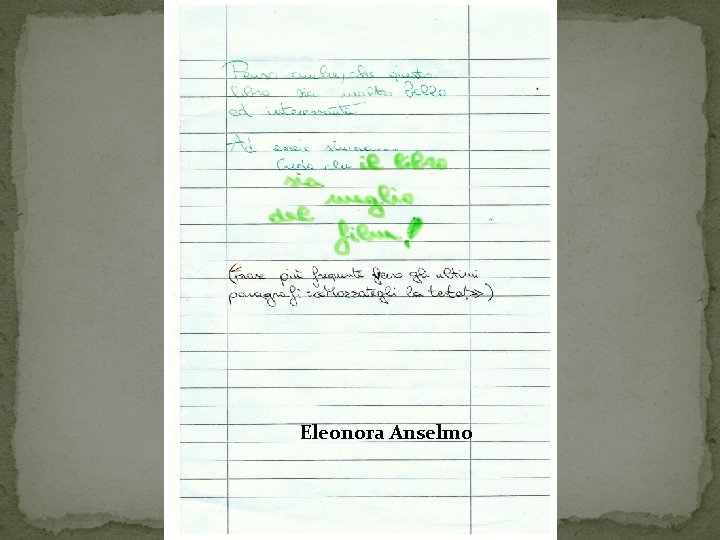 Penso anche, che questo
libro sia molto bello
ed interessante
Ad essere sincera...
Credo che il libro
sia meglio
del film!
(Frase più frequente fra gli ultimi
paragrafi :«Mozzategli la testa!»)
Eleonora Anselmo